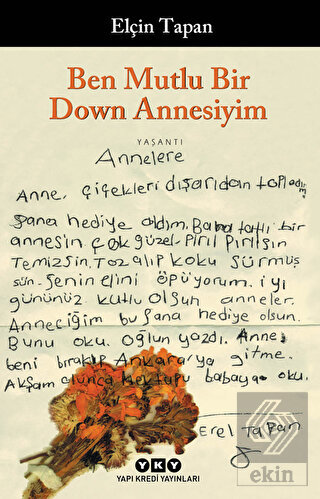 Elçin Tapan
Ben Mutlu Bir
Down Annesiyim
YAŞANTI
Annelere
Anne, çiçekleri dışarıdan topladım
sana hediye aldım. Baba tatlı bir
annesin çok güzel. Pırıl Pırılsın
Temizsin, Toz alıp koku sürmüş
sün. Senin elini öpüyorum. iyi
gününüz kutlu olsun anneler.
Anneciğim bu sana hediye olsun.
Bunu oku. oğlun yazdı. Anne
beni bırakıp Ankara'ya gitme.
Akşam olunca mektubu babaya oku.
Erel Tapan
YKY
YAPI KREDİ YAYINLARI
ekin